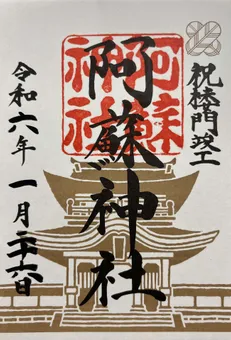 祝楼門竣工
阿蘇神社
阿蘇神社
令和六年 一月二十六日